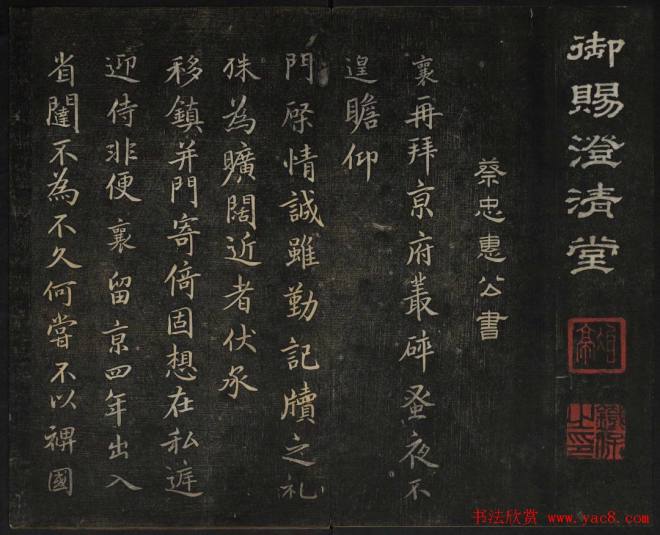 御賜澄清堂
鐵保之印
蔡忠惠公書
襄再拜京府叢碎蚤夜不
遑瞻仰
門屏情誠雖勤記牘之礼
殊為曠闊近者伏承
移鎮并門寄倚固想在私遽
迎侍非便襄留京四年出入
省闥不為不久何嘗不以裨國
书法欣赏 www.yac8.com